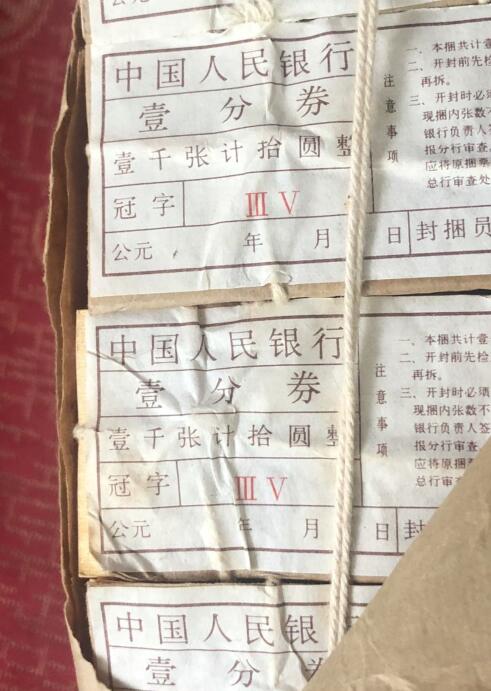 中国人民银行
壹分券
壹千张计拾圆整
冠字 III V
公元 年 月 日 封捆员
注意事项
一、本捆共计壹
二、开封前先检
再拆。
三、开封时必须
现捆内张数不
银行负责人签
报分行审查
应将原捆
总行审查处
中国人民银行
壹分券
壹千张计拾圆整
冠字 III V
公元 年 月 日 封
注意事项
一、本捆共计壹
二、开封前先检
再拆。
三、开封时必须
现捆内张数不
银行负责人签
报分行审查
应将原捆
总行审查
中国人民银
壹分券